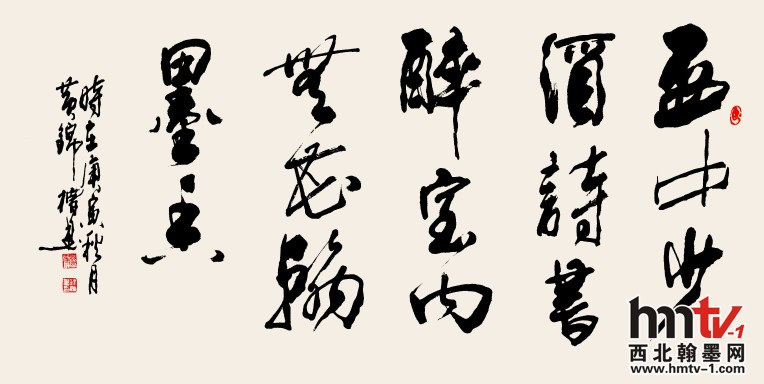 壺中少
酒詩書
醉室内
無花翰
墨香
時在庚寅秋月
黄錦書
hmtv-1
西北翰墨网
www.hmtv-1.com